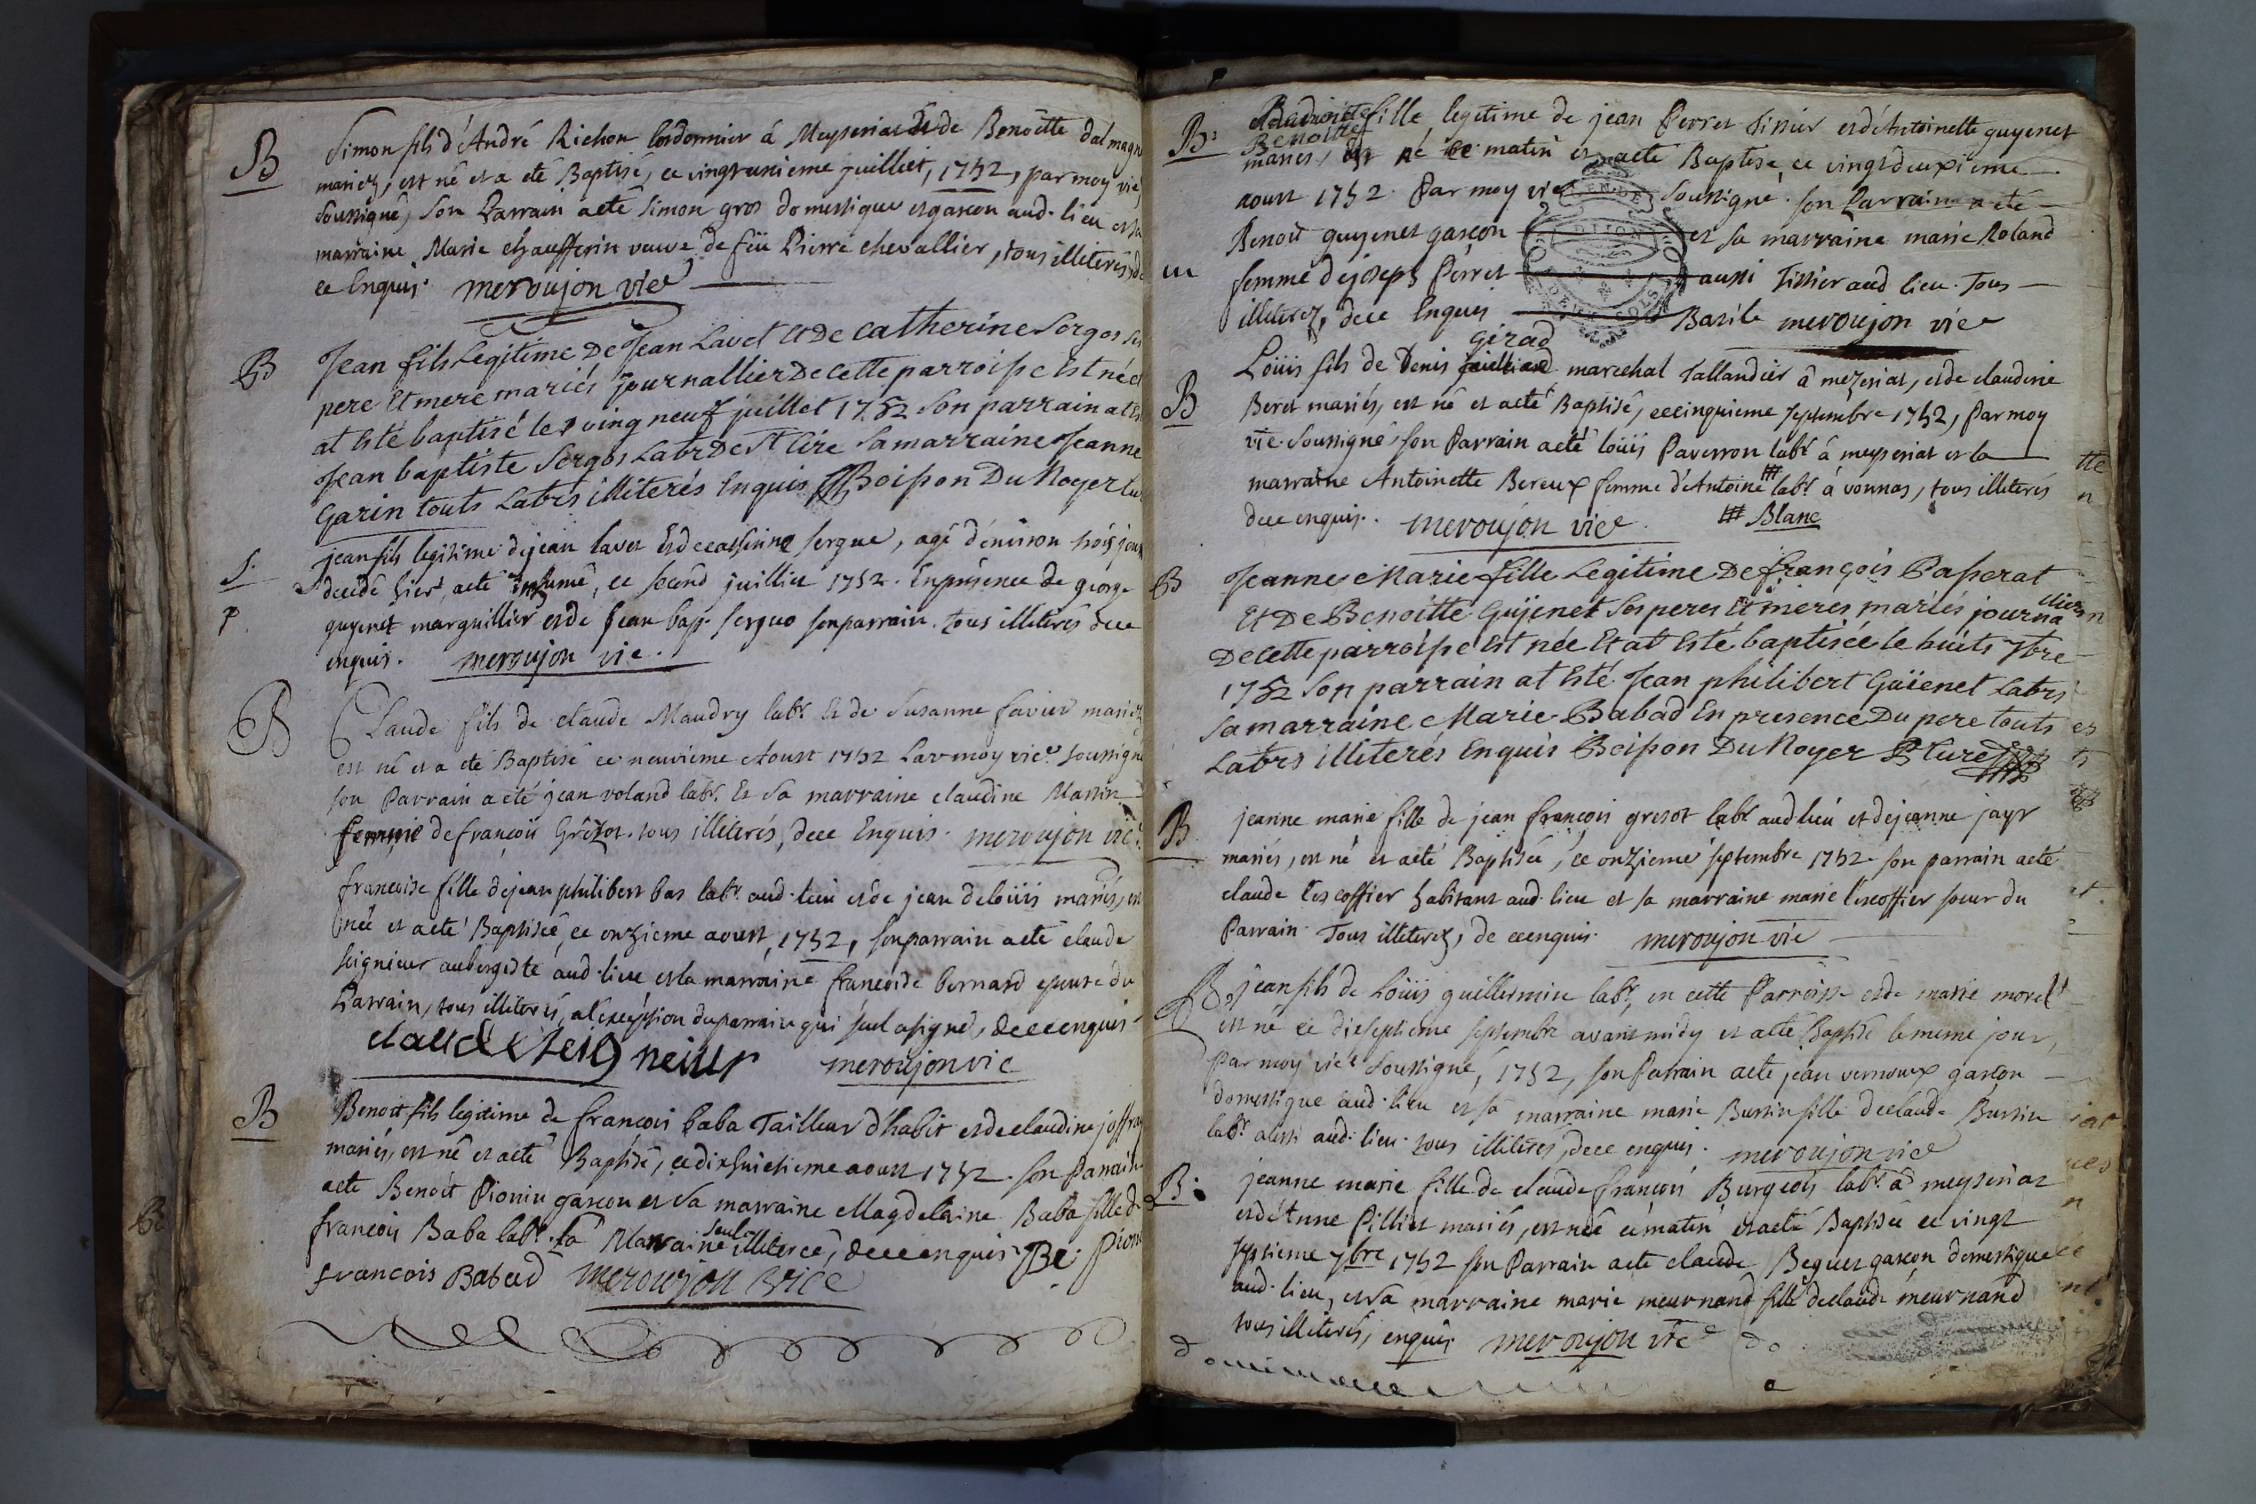 B
Simon fils d'André Richon Cordonnier á Meyseriat Et de Benoîtte dalmagn
mariez, est né et a eté Baptisé, ce vingt unieme juilliet, 1752, par moy vic
soussigné, son Parrain a eté Simon gros domestique et garcon aud. lieu et sa
marraine Marie chaufferin veuve de feü Pierre chevallier, tous illiterés, de
ce Enquis. meroujon vice
B
Jean fils Legitime De Jean Lavet Et De catherine Sergos ses
pere Et mere mariés journallier De cette parroisse Est né et
at Esté baptisé le ving neuf juillet 1752 Son parrain at Esté
Jean baptiste Sergos Labr De St Cire Sa marraine Jeanne
Garin touts Labrs illiterés Enquis Boisson Du Noyer Cu
S.
P.
jean fils legitime de jean lavet Et de catherine sergue, agé d'environ trois jours
decédé hier, a eté inhumé, ce second juilliet 1752. En présence de george
guyenet marguillier et de Jean bap. serguo son parrain. tous illiterés de ce
enquis. meroujon vic.
B
Claude fils de claude Maudry labr. Et de Susanne favier mariez
est né et a eté Baptisé ce neuvieme Aoust 1752 Par moy vice soussigné
son Parrain a eté jean voland labr. Et Sa marraine claudine Martin
femme de françois Grêzot. tous illiterés, de ce Enquis. meroujon vic.
françoise fille de jean philibert bas labr. aud. lieu et de jean deloüis mariés, est
née et a eté Baptisée, ce onzieme aoust, 1752, son parrain a eté claude
seignieur aubergiste aud. lieu et la marraine françoise bernard epouse du
Parrain, tous illiterés, a l'exception du parrain qui seul a signé, de ce enquis
claude seigneiur meroujon vic
B
Benoit fils legitime de françois baba Tailleur d'habit et de claudine joffray
mariés, est né et a eté Baptisé, ce dixhuitieme aoust 1752. son Parrain
a eté Benoît Pionin garçon et sa marraine Magdelaine Baba fille de
françois Baba labr. la Marraine seule illiterée, de ce enquis. Be. Pion
francois Babad meroujon vice
B:
Benoitte
fille legitime de jean Perret Tissier et d'Antoinette guyenet
mariés, est né ce matin et a eté Baptisé, ce vingtdeuxieme
aoust 1752. Par moy vice soussigné. son Parrain a eté
Benoit guyenet garçon et sa marraine marie Roland
femme de joseph Perret aussi Tissier aud lieu. Tous
illiterez, de ce Enquis Basile meroujon vice
Girad
B
Loüis fils de Denis marechal Tallandier â mezeriat, et de claudine
Beret mariés, est né et a eté Baptisé, ce cinquieme septembre 1752, Par moy
vic. Soussigné, son Parrain a eté loüis Paverron labr. â meyseriat et la
marraine Antoinette Bereux femme d'Antoine # labr. á vonnas, tous illiterés
de ce enquis. meroujon vice. # Blanc
B
Jeanne Marie fille Legitime De françois Passerat
Et De Benoitte Guÿenet Ses peres Et meres mariés journa
lier
De cette parroisse Est née Et at Esté baptisée le huits 7bre
1752 Son parrain at Esté Jean philibert Guïenet Labrs
Sa marraine Marie Babad En presence Du pere touts
Labrs illiterés Enquis Boisson Du Noyer Curé
B
jeanne marie fille de jean françois gresot labr aud lieu et de jeanne jayr
mariés, est né et a eté Baptisée, ce onzieme septembre 1752. son parrain a eté
claude l'escoffier habitant aud. lieu et sa marraine marie l'escoffier soeur du
Parrain. Tous illiterez, de ce enquis. meroujon vic
B.
jean fils de Loüis guillermin labr, en cette Parroisse et de marie morel
est né ce dieseptieme septembre avant midy et a eté Baptisé le meme jour,
Par moy vice Soussigné, 1752, son Parrain a eté jean vernoux garcon
domestique aud. lieu et sa marraine marie Bussin fille de claude Bussin
labr. aussi aud. lieu. tous illiterés, de ce enquis. meroujon vice
B.
jeanne marie fille de claude françois Burgeois labr. à meyseriat
et d'Anne Pilliet mariés, est née ce matin et a eté Baptisée ce vingt
septieme 7bre 1752 son Parrain a eté claude Beguet garcon domestique
aud. lieu, et sa marraine marie meurnand fille de claude meurnand
tous illiterés, enquis meroujon vice